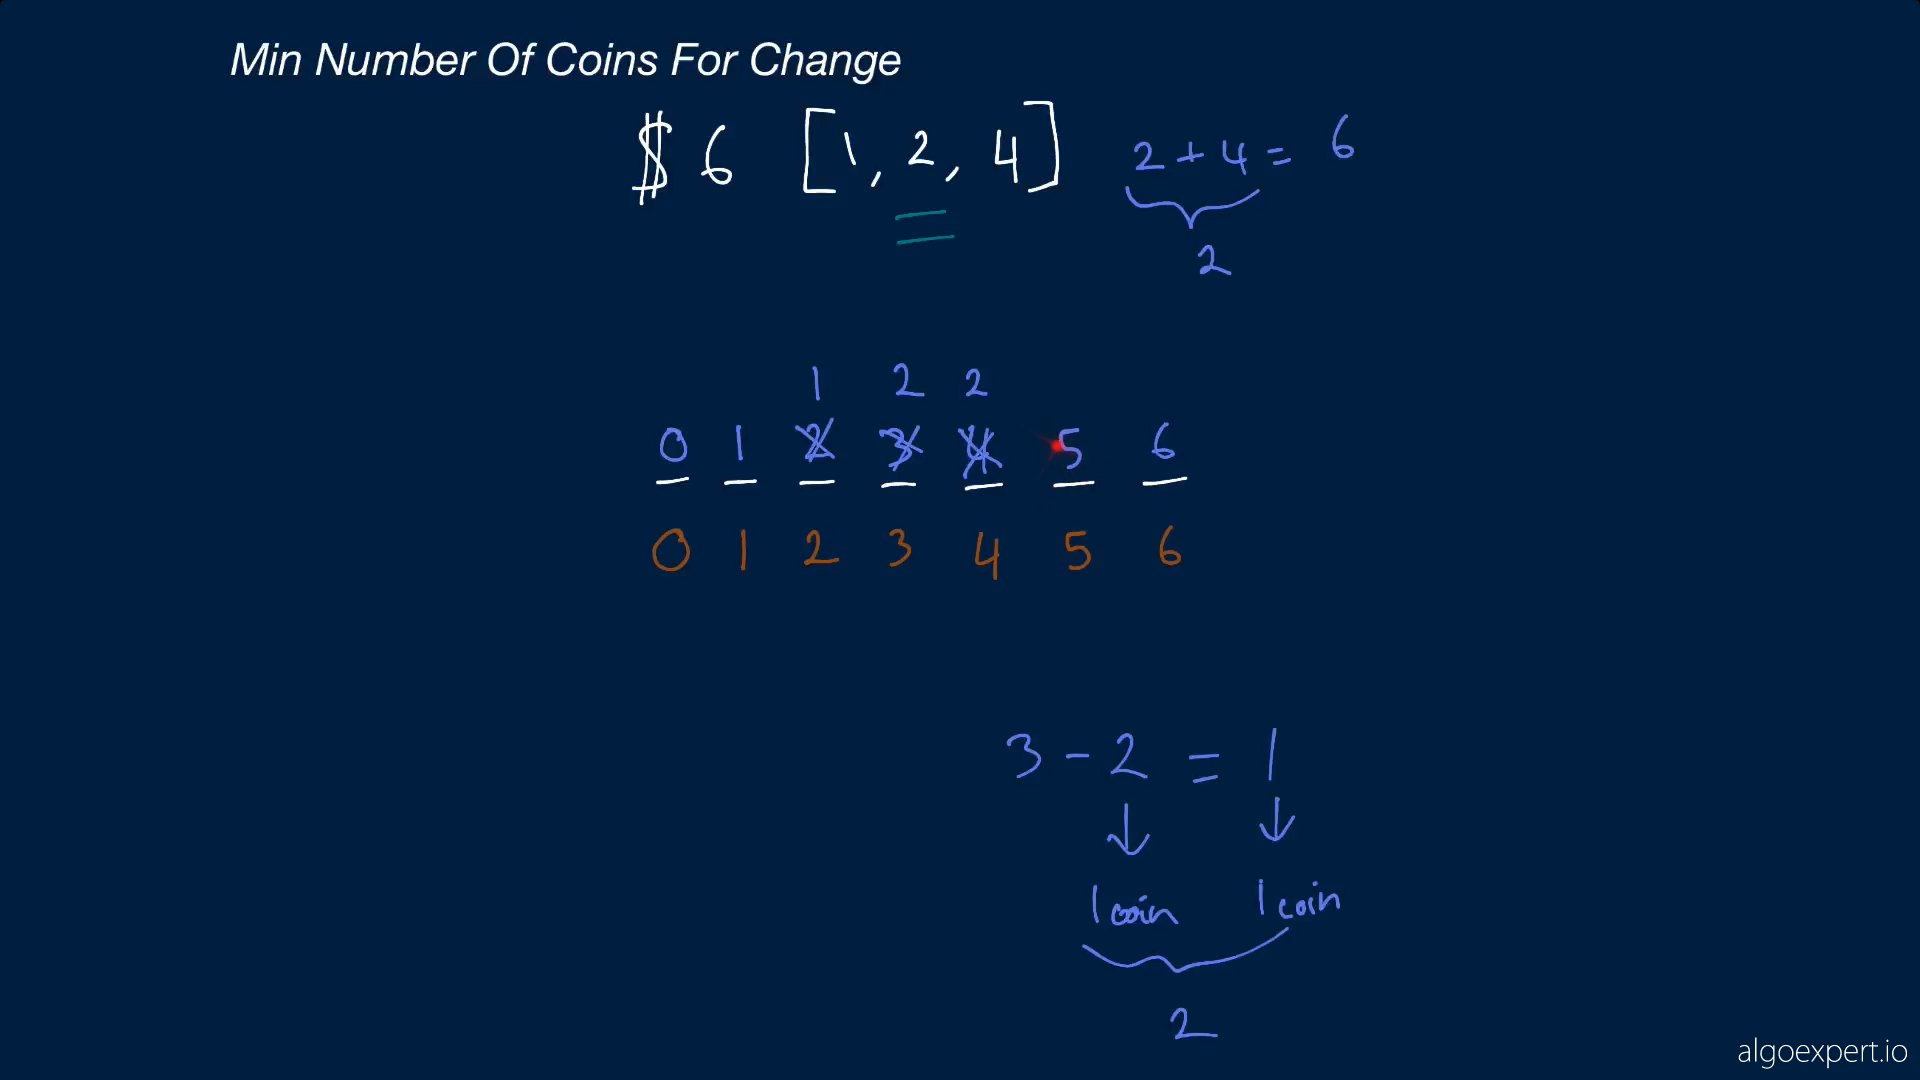 Min Number Of Coins For Change
$ 6 [1, 2, 4] 2 + 4 = 6
2
1 2 2
0 1 2 3 4 5 6
0 1 2 3 4 5 6
3 - 2 = 1
1 coin 1 coin
2
algoexpert.io